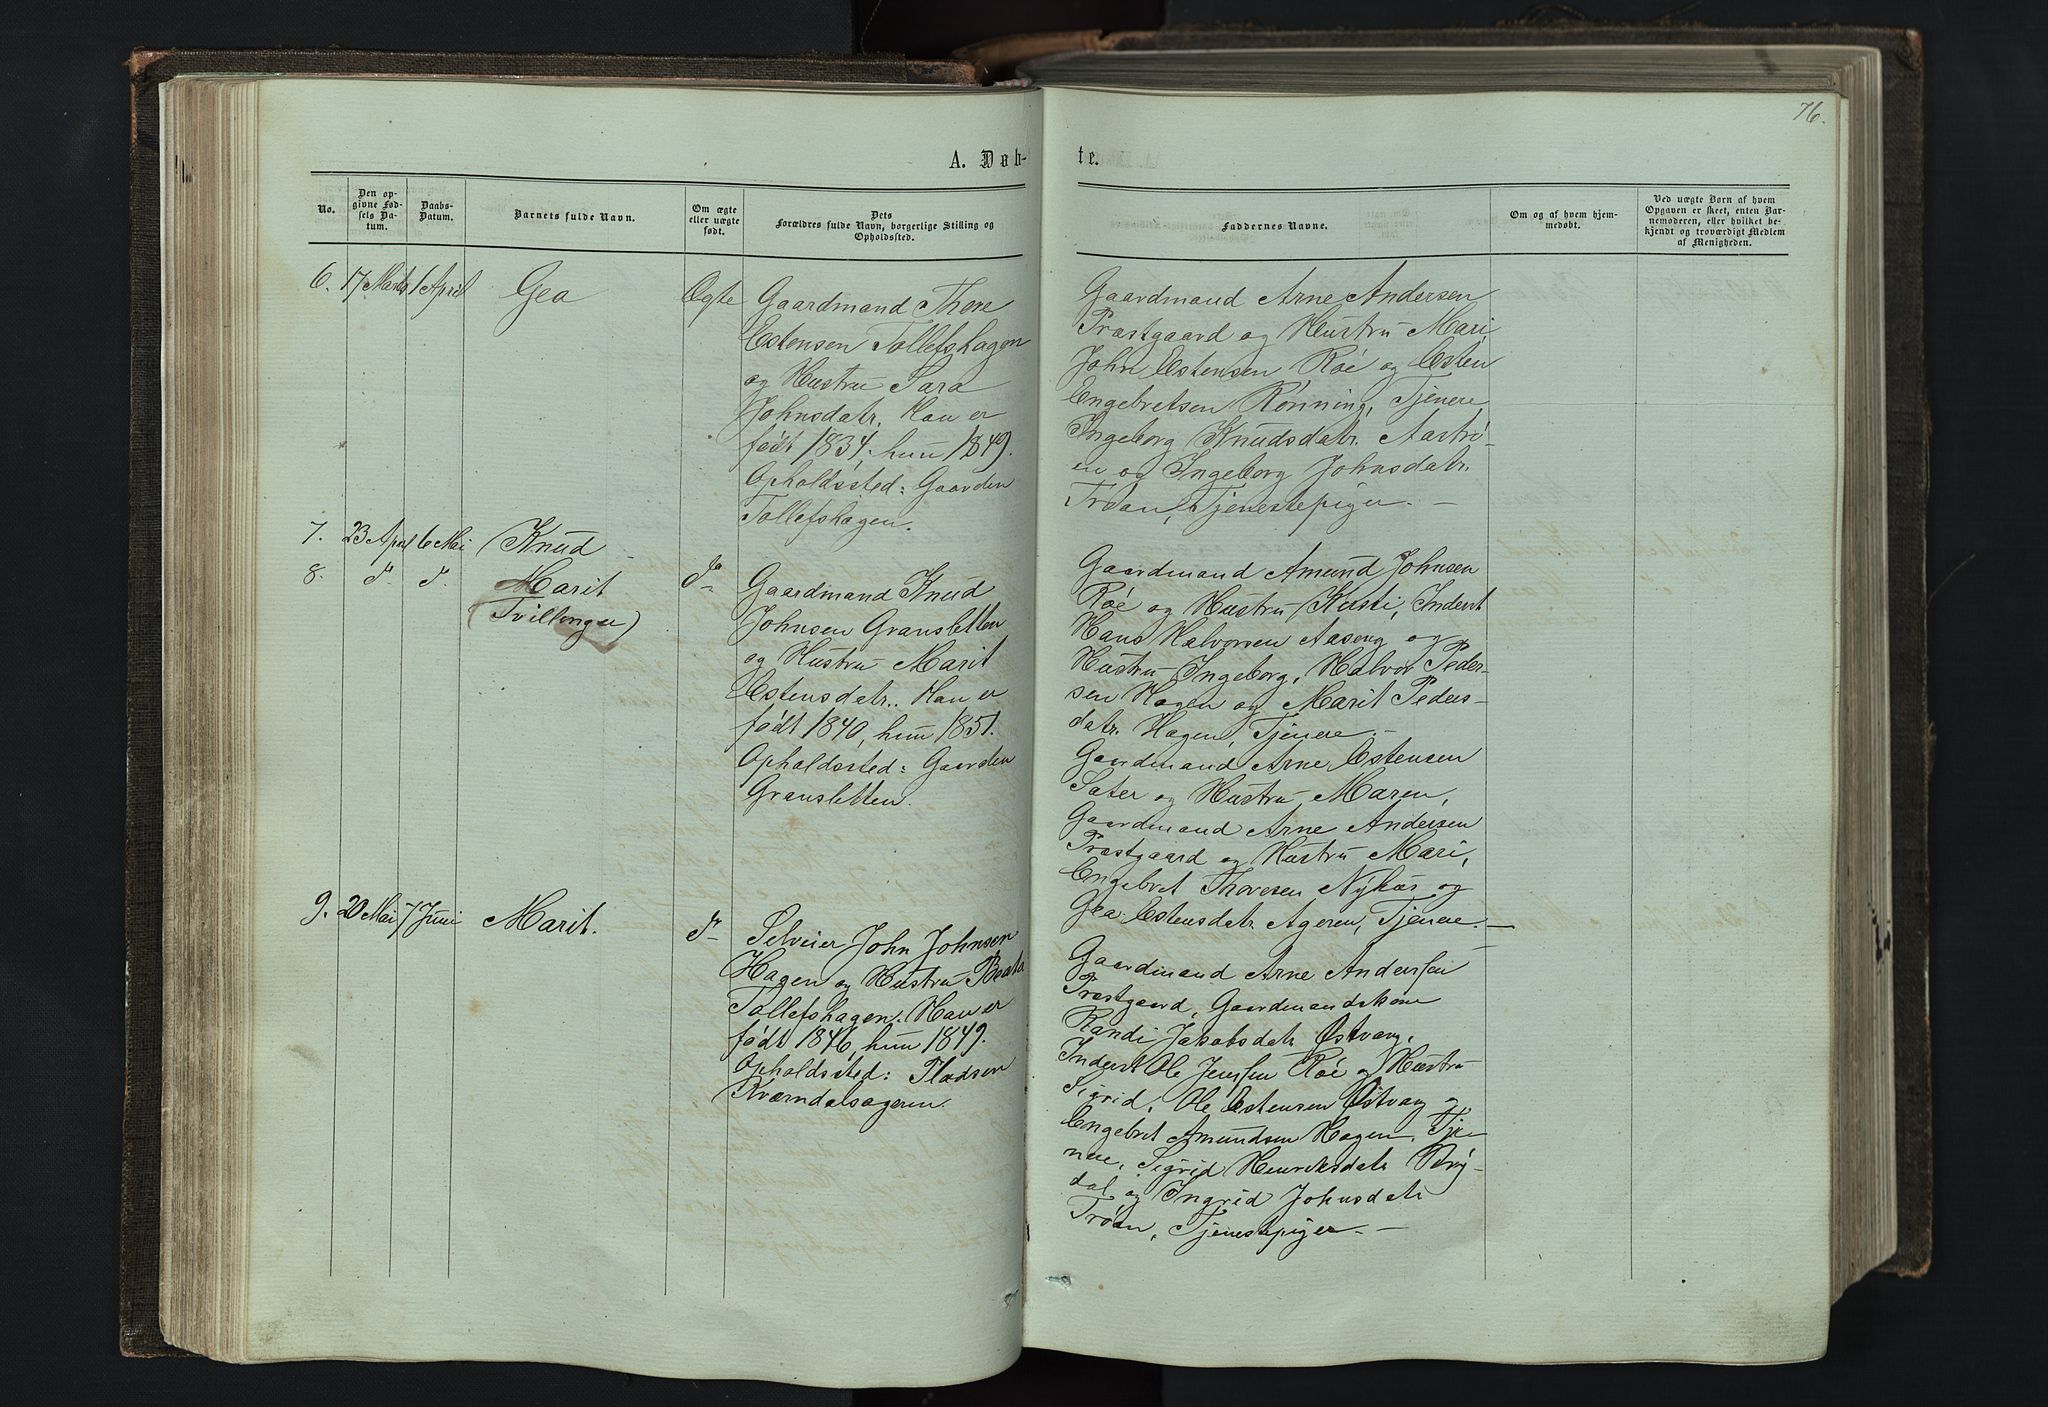 76.
A. Døb-
te.
No.
Den op-
givne Fød-
sels Da-
tum.
Daabs-
Datum.
Barnets fulde Navn.
Om ægte
eller uægte
født.
Dets
Forældres fulde Navn, borgerlige Stilling og
Opholdssted.
Faddernes Navne.
Om og af hvem hjem-
medøbt.
Ved uægte Børn af hvem
Opgaven er skeet, enten Bar-
nemoderen, eller hvilket be-
kjendt og troværdigt Medlem
af Menigheden.
6. 17 Marts 1 April Gea Ægte
Gaardmand Thore
Estensen Tollefshagen
og Hustru Sara
Johnsdatr. Han er
født 1834, hun 1849.
Opholdssted: Gaarden
Tollefshagen.
Gaardmand Arne Andersen
Præstgaard og Hustru Mari,
John Estensen Røe og Esten
Engebretsen Rønning, Tjenere
Ingeborg Knudsdatr. Aastrø-
en og Ingeborg Johnsdatr.
Trøan, Tjenestepiger. —
7. 23 April 6 Mai Knud
8. d° d° Marit
(Tvillinger)
d°
Gaardmand Knud
Johnsen Gransletten
og Hustru Marit
Estensdatr. Han er
født 1840, hun 1851.
Opholdssted: Gaarden
Gransletten.
Gaardmand Amund Johnsen
Røe og Hustru Kusti, Inderst
Hans Halvorsen Aaseng og
Hustru Ingeborg, Halvor Peder-
sen Hagen og Marit Peders-
datr. Hagen, Tjenere. —
Gaardmand Arne Estensen
Sæter og Hustru Maren,
Gaardmand Arne Andersen
Præstgaard og Hustru Mari,
Engebret Thoresen Nykås og
Gea Estensdatr Ageren, Tjenere. —
9. 20 Mai 7 Juni Marit. d°
Selveier John Johnsen
Hagen og Hustru Beata
Tollefshagen. Han er
født 1846, hun 1849.
Opholdssted: Pladsen
Kværndalsageren.
Gaardmand Arne Andersen
Præstgaard, Gaardmandskone
Randi Jakobsdatr Østvang,
Inderst Ole Jensen Røe og Hustru
Sigrid, Ole Estensen Østvang og
Engebret Amundsen Hagen, Tje-
nere, Sigrid Henriksdatr Bry-
dal og Ingrid Johnsdatr
Trøan, Tjenestepiger. —